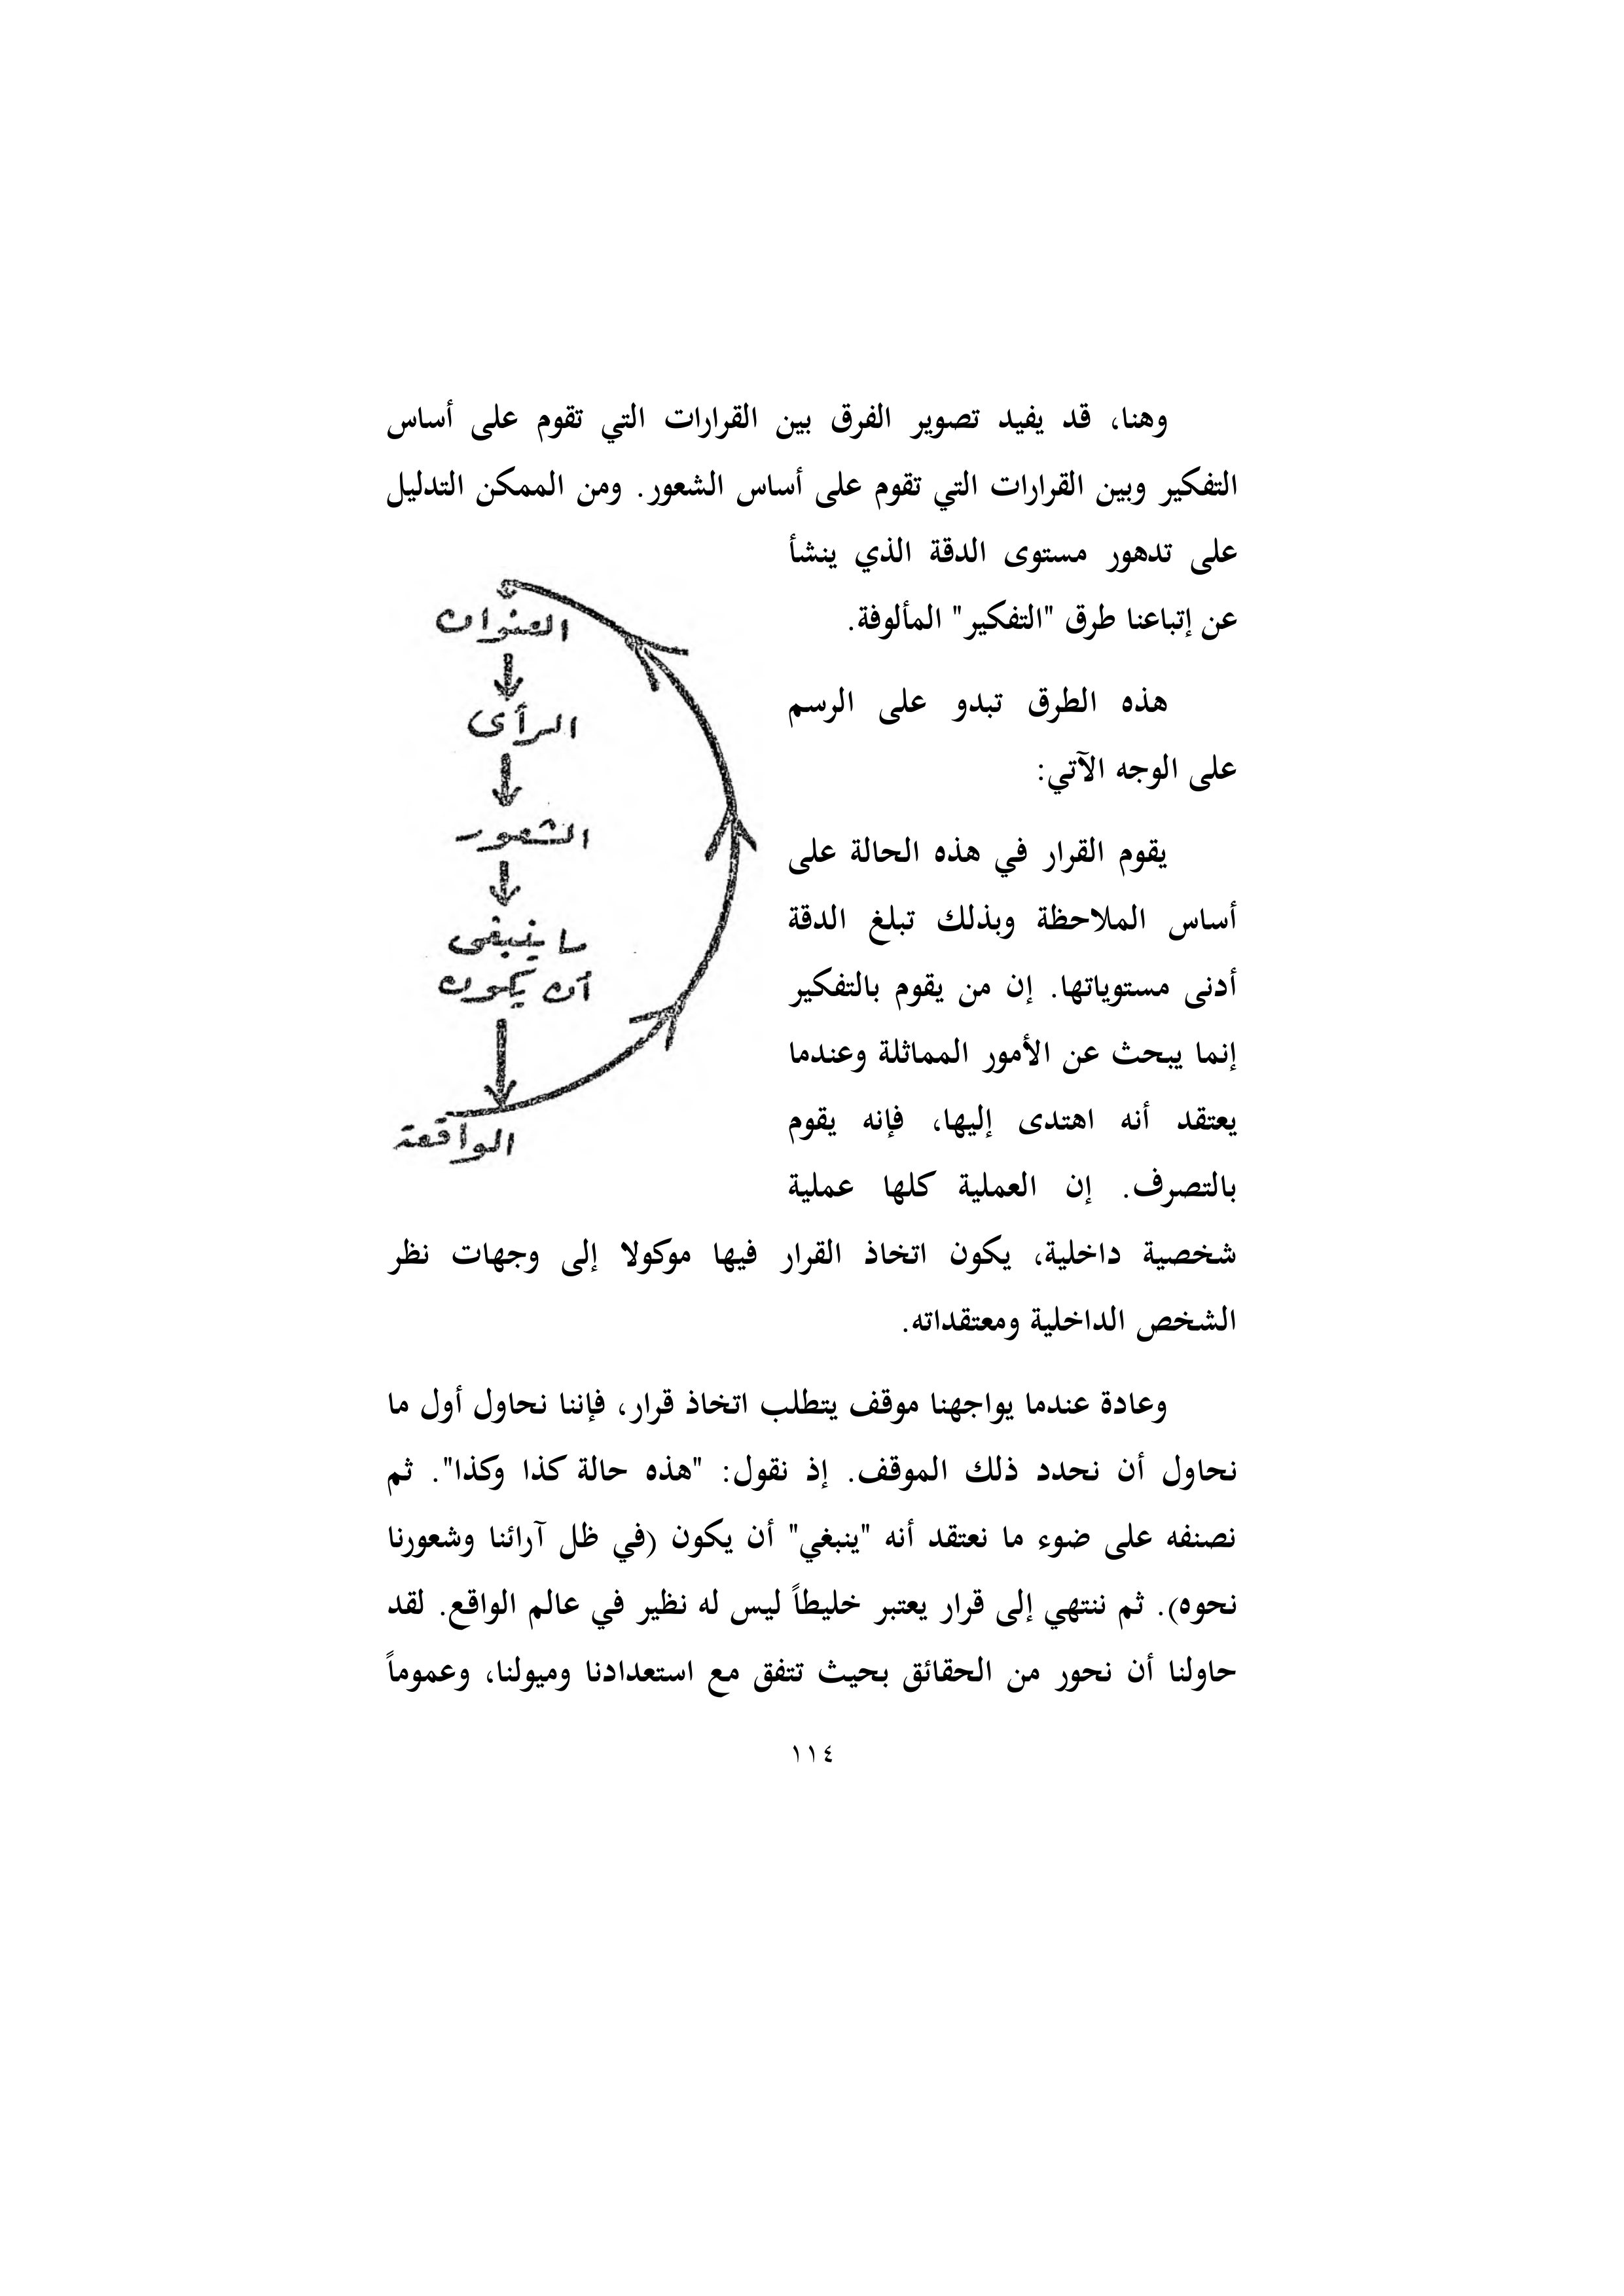 وهنا، قد يفيد تصوير الفرق بين القرارات التي تقوم على أساس
التفكير وبين القرارات التي تقوم على أساس الشعور. ومن الممكن التدليل
على تدهور مستوى الدقة الذي ينشأ
عن إتباعنا طرق "التفكير" المألوفة.
هذه الطرق تبدو على الرسم
على الوجه الآتي:
يقوم القرار في هذه الحالة على
أساس الملاحظة وبذلك تبلغ الدقة
أدنى مستوياتها. إن من يقوم بالتفكير
إنما يبحث عن الأمور المماثلة وعندما
يعتقد أنه اهتدى إليها، فإنه يقوم
بالتصرف. إن العملية كلها عملية
شخصية داخلية، يكون اتخاذ القرار فيها موكولا إلى وجهات نظر
الشخص الداخلية ومعتقداته.
العنوان
الرأى
الشعور
ما ينبغى
أن يكون
الواقعة
وعادة عندما يواجهنا موقف يتطلب اتخاذ قرار، فإننا نحاول أول ما
نحاول أن نحدد ذلك الموقف. إذ نقول: "هذه حالة كذا وكذا". ثم
نصنفه على ضوء ما نعتقد أنه "ينبغي" أن يكون (في ظل آرائنا وشعورنا
نحوه). ثم ننتهي إلى قرار يعتبر خليطاً ليس له نظير في عالم الواقع. لقد
حاولنا أن نحور من الحقائق بحيث تتفق مع استعدادنا وميولنا، وعموماً
١١٤